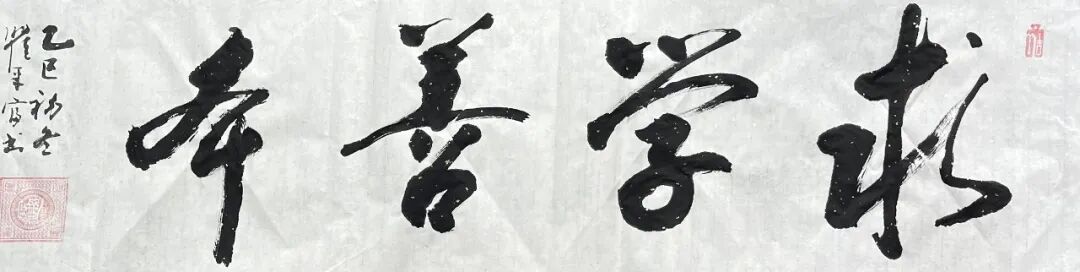 求学善本
乙巳初冬